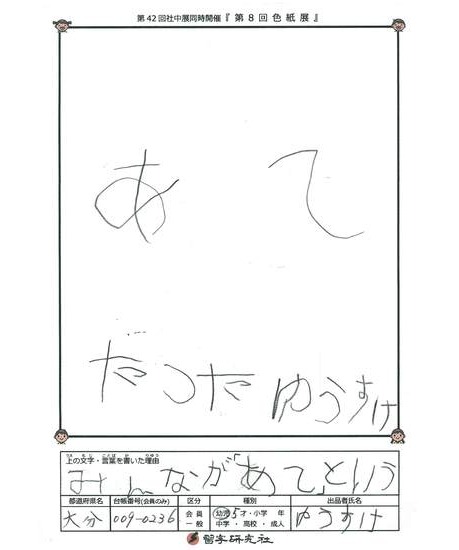 第42回社中展同時開催『第8回色紙展』
あて
だった ゆうすけ
上の文字・言葉を書いた理由
みんなが「あて」という
都道府県名 台帳番号(会員のみ) 区分 種別 出品者氏名
大分 009-0236 会員 一般 幼児5才・小学 年 中学・高校・成人 ゆうすけ
習字研究社